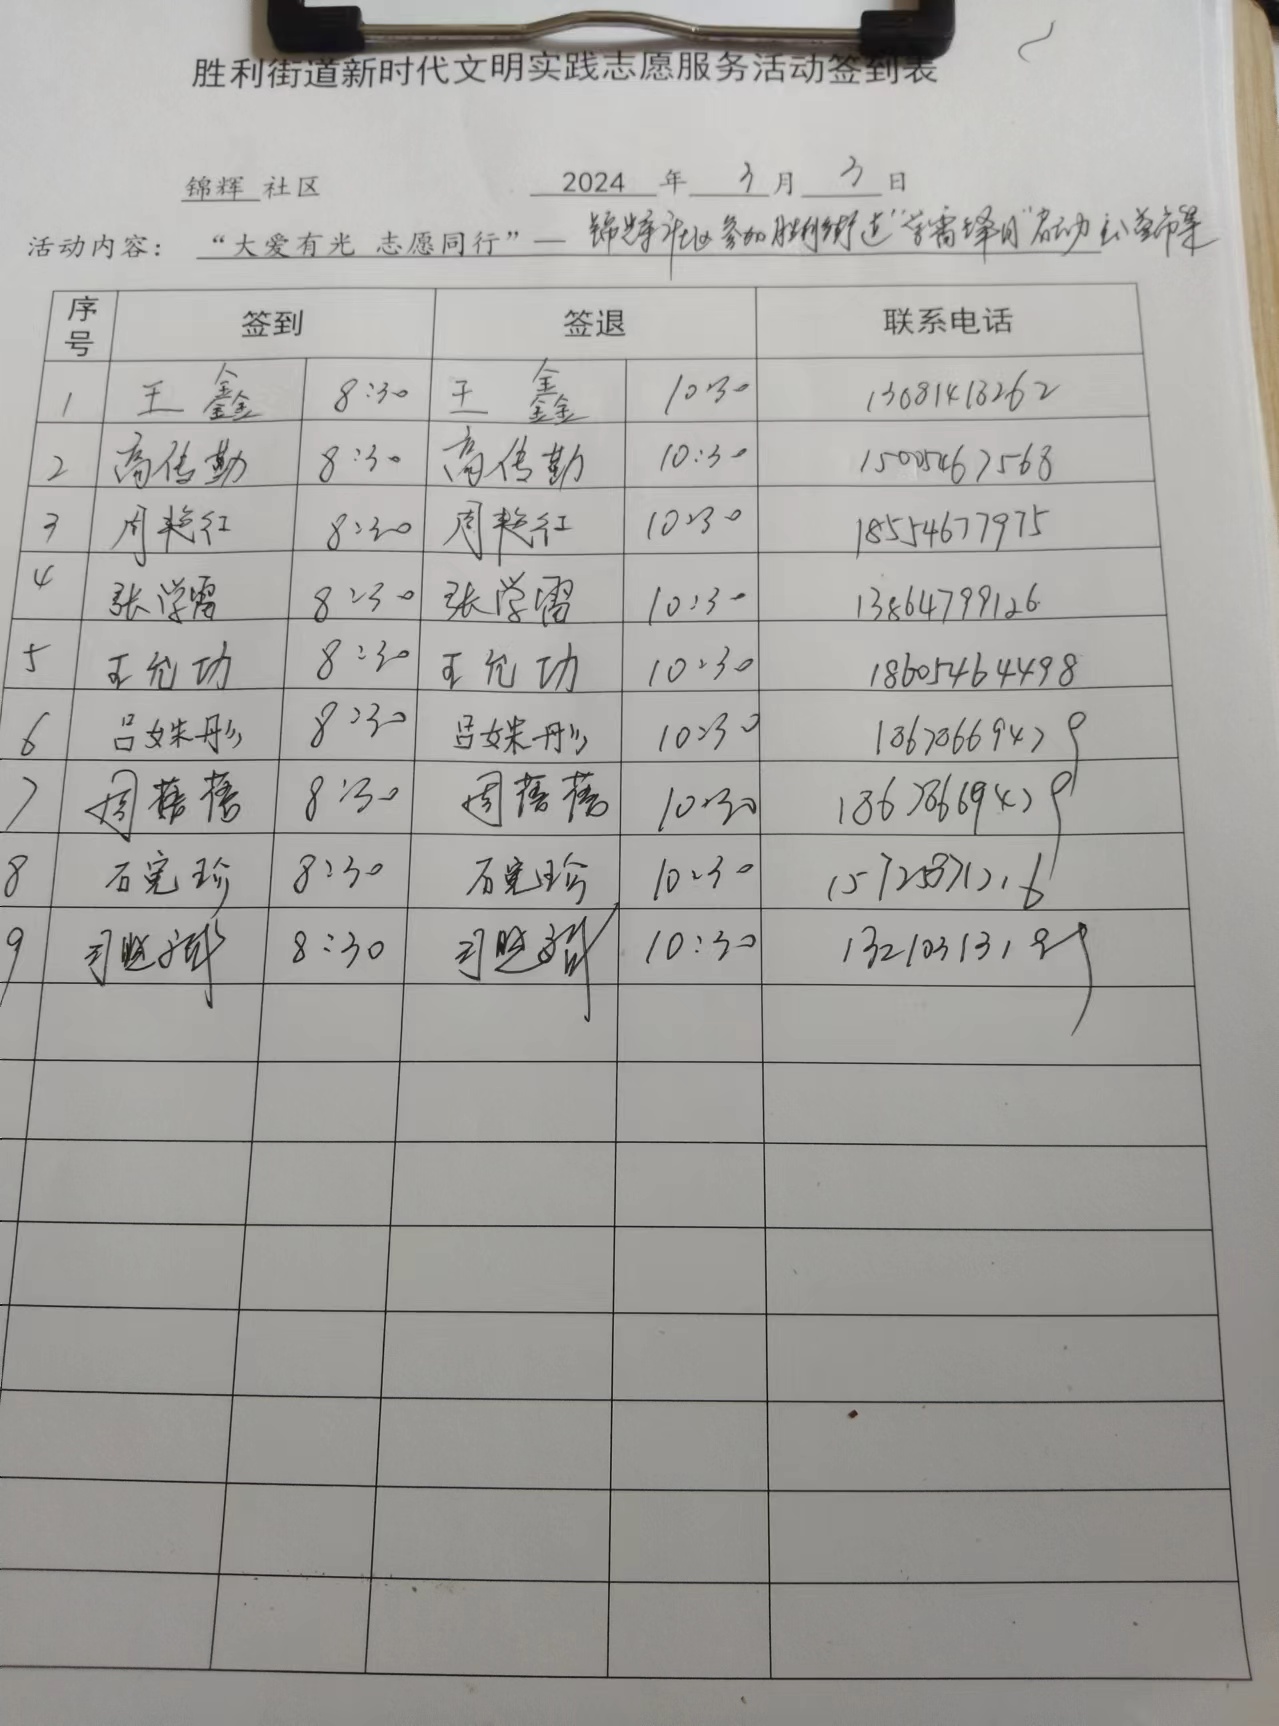 胜利街道新时代文明实践志愿服务活动签到表
锦辉 社区 2024 年 3 月 3 日
活动内容： “大爱有光 志愿同行”— 锦辉社区参加胜利街道“学雷锋日”启动公益市集
序号 签到 签退 联系电话
1 王鑫 8:30 王鑫 10:30 13081413262
2 高传勤 8:30 高传勤 10:30 15005467568
3 周艳红 8:30 周艳红 10:30 18554677975
4 张学雷 8:30 张学雷 10:30 13864799126
5 王允功 8:30 王允功 10:30 18605464498
6 吕姝彤 8:30 吕姝彤 10:30 18678669479
7 周蓓蓓 8:30 周蓓蓓 10:30 18678669479
8 石宪珍 8:30 石宪珍 10:30
9 8:30 10:30